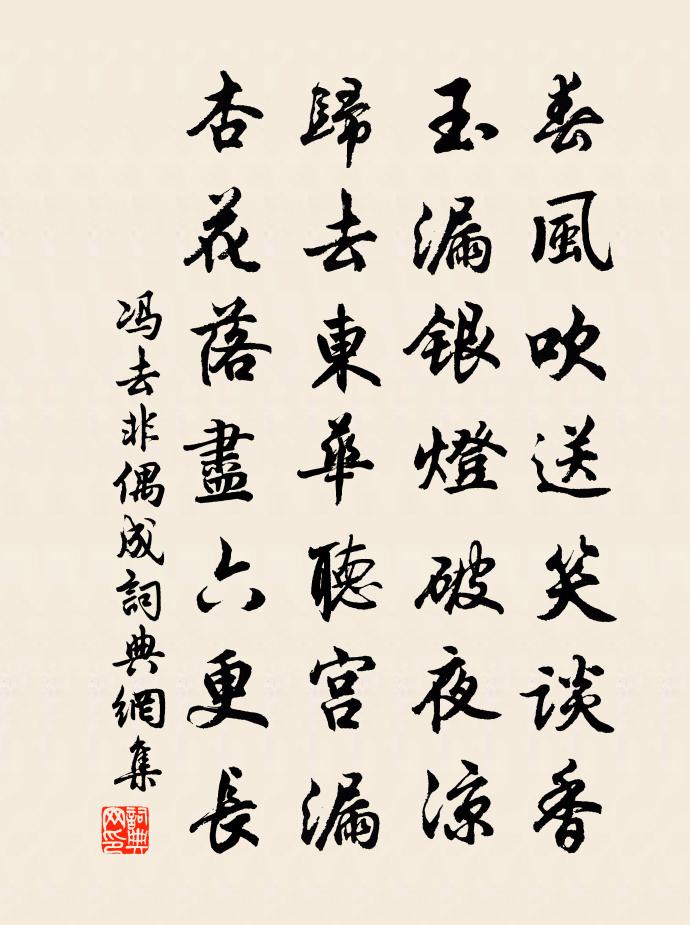 春風吹送笑談香
玉漏銀燈破夜凉
歸去東華聽宫漏
杏花落盡六更長
冯去非偶成詞典網集
詞典网印